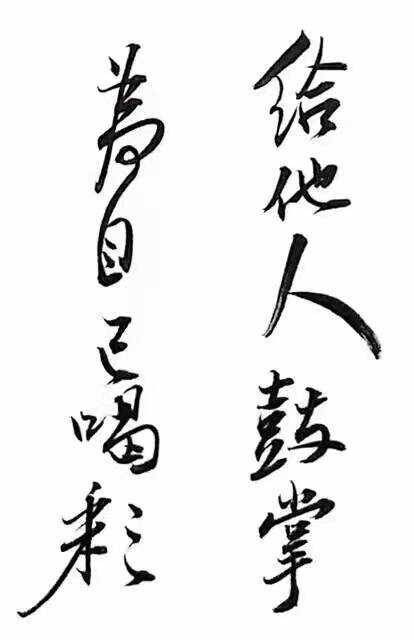 给他人鼓掌
为自己喝彩